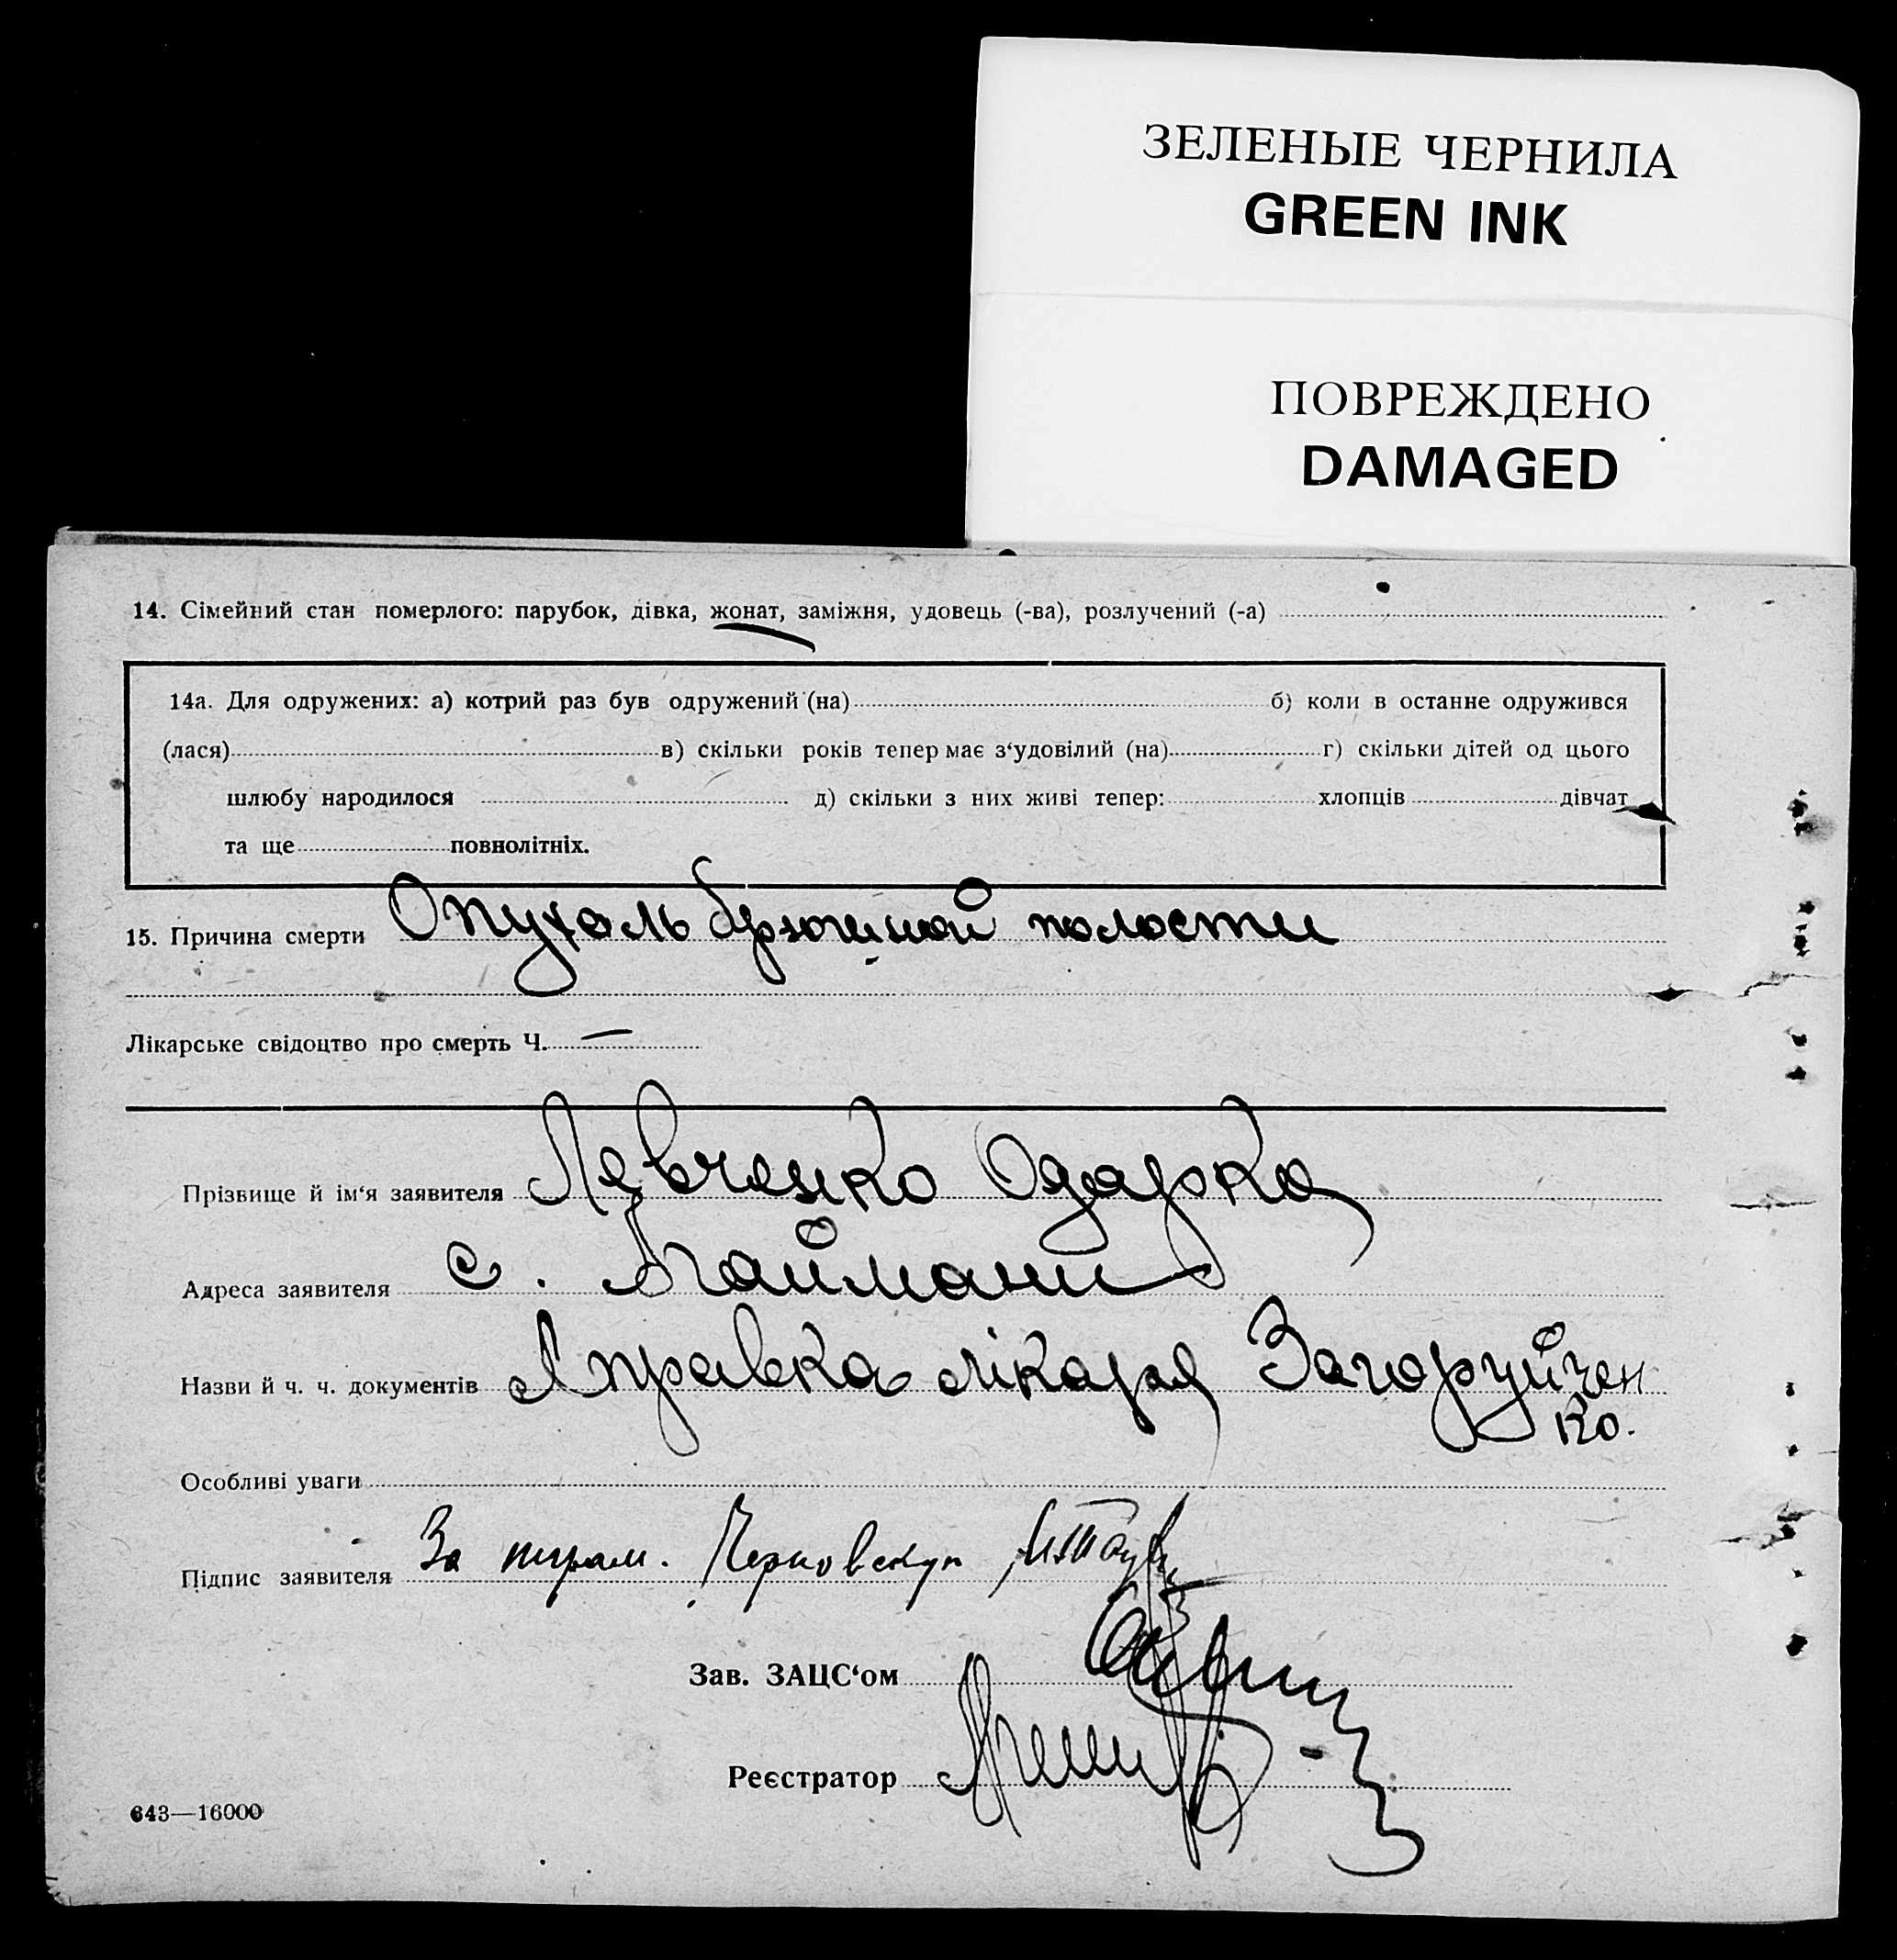 ЗЕЛЕНЫЕ ЧЕРНИЛА
GREEN INK
ПОВРЕЖДЕНО
DAMAGED
14. Сімейний стан померлого: парубок, дівка, жонат, заміжня, удовець (-ва), розлучений (-а)
14а. Для одружених: а) котрий раз був одружений (на) б) коли в останнє одружився
(лася) в) скільки років тепер має з‘удовілий (на) г) скільки дітей од цього
шлюбу народилося д) скільки з них живі тепер: хлопців дівчат
та ще повнолітніх.
15. Причина смерти Опухоль брюшной полости
Лікарське свідоцтво про смерть Ч. —
Прізвище й ім‘я заявителя Левченко Одарка
Адреса заявителя с.
Назви й ч. ч. документів Справка лікаря Загоруйчен
ко.
Особливі уваги
Підпис заявителя За
Зав. ЗАЦС‘ом
Реєстратор
643—16000